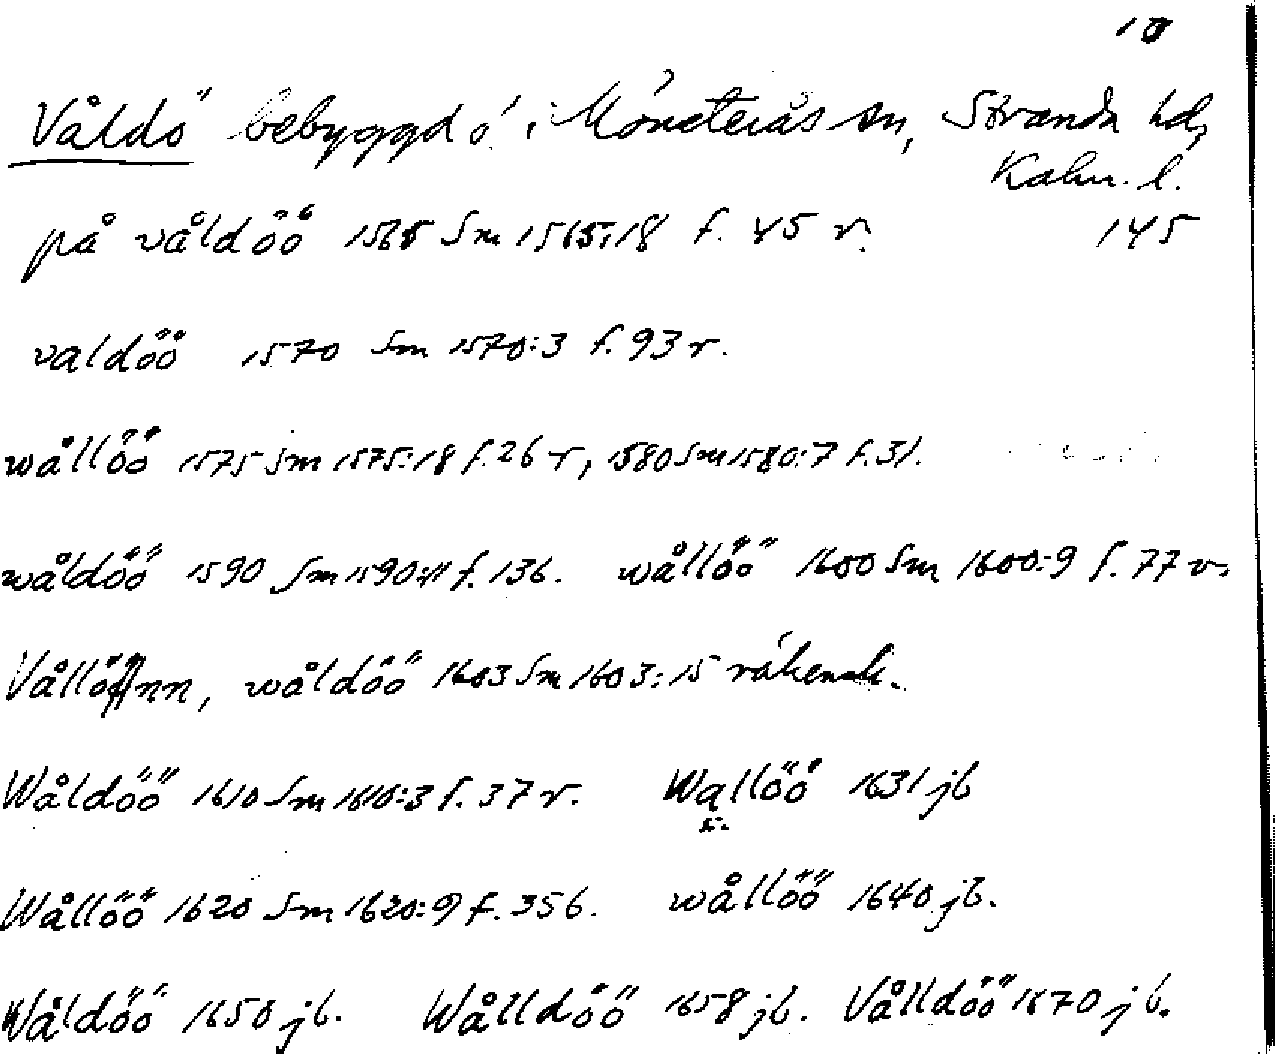 10
Våldö bebyggd ö i Mönsterås sn, Stranda hd,
Kalm. l.
på våldöö 1565 Sm 1565:18 f. 45 r. 145
valdöö 1570 Sm 1570:3 f. 93 r.
wållöö 1575 Sm 1575:18 f. 26 r, 1580 Sm 1580:7 f. 31.
wåldöö 1590 Sm 1590:11 f. 136. wållöö 1600 Sm 1600:9 f. 77 v.
wåldöö 1603 Sm 1603:15 räkensk.
Wåldöö 1610 Sm 1610:3 f. 37 r. Wallöö 1631 jb
Wållöö 1620 Sm 1620:9 f. 356. wållöö 1640 jb.
Wåldöö 1650 jb. Wålldöö 1658 jb. Vålldöö 1670 jb.